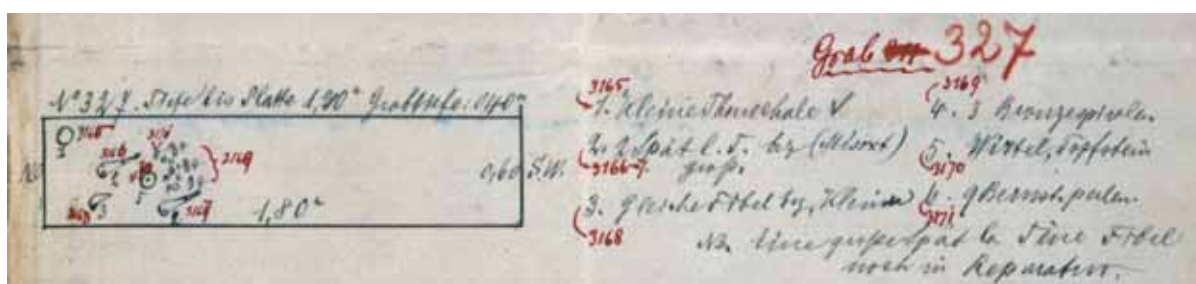 Grab 327
No 327. Tiefe bis Platte 1,90m Grabtiefe: 0,40m
3165
3171
3166
3169
3167
3168
NO
0,60 S.W.
1,80m
3165
1. Kleine Thonschale
2. 2 Spät l. T. bz (Misox)
3166-7 groß.
3. gleiche Fibel bz, Kleine
3168
3169
4. 3 Bronzespiralen
5. Wirtel, Topfstein
3170
6. 9 Bernst. perlen
3171
NB. Eine große spät la Tine Fibel
noch in Reparatur.